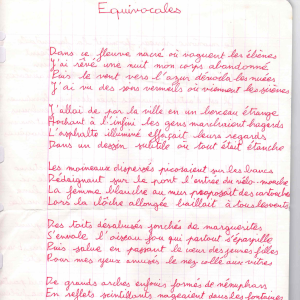 Equivocales
Dans ce fleuve nacré où voguent les ébènes
J'ai rêvé une nuit mon corps abandonné
Puis le vent vers l'azur dénoua les nuées
J'ai vu des sons vermeils où viennent les sirènes
J'allai de par la ville en un berceau étrange
Hochant à l'infini les gens marchaient hagards
L'asphalte illuminé effaçait leurs regards
Dans un dessin subtil où tout était étanche
Les moineaux dispersés picosaient sur les bancs
Dédaignant sur le pont l'entrée du vélo-manche
La femme blanche au mur proposait des cartouches
Lors la cloche allongée baillait à tous les vents
Des toits désabusés jonchés de marguerites
S'envole l'oiseau fou qui partout s'éparpille
Puis salue en passant le cœur des jeunes filles
Pour mes yeux amusés le nez collé aux vitres
De grandes arches enfouies formées de nénuphars
En reflets scintillants nageaient dans les fontaines